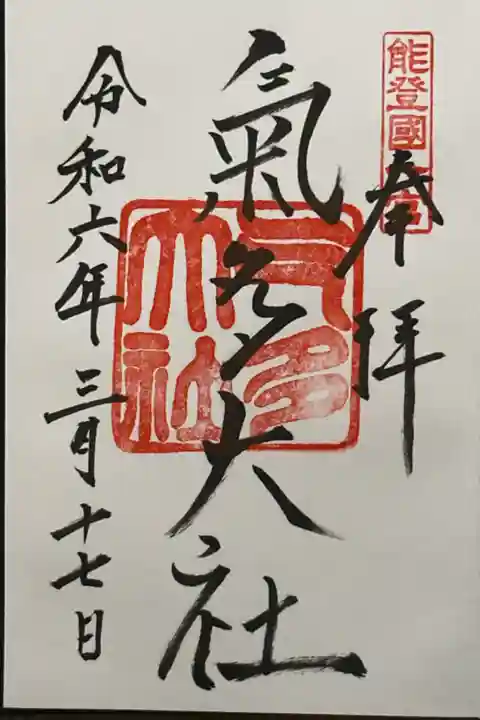 能登國一宮
奉拝
氣多大社
気多大社
令和六年三月十七日